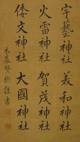 宇藝神社 美和神社
火雷神社 賀茂神社
倭文神社 大國神社